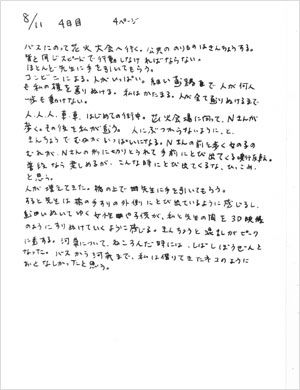 8/11 4日目 4ページ
バスにのって花火大会へ行く。公共ののりものはきんちょうする。
皆と同じスピードで行動しなければならない。
ほとんど先生に手を引いてもらう。
コンビニによる。人がいっぱい。細い通路まで人が何人
も私の横を通りぬける。私はかたまる。人が全て通りぬけるまで
一歩も動けない。
人、人、人、車、車、はじめての街中。花火大会場に向って、Nさんが
歩く。その後を私が追う。人にぶつからないように、と、
きんちょうでむねがいっぱいになる。Nさんの前を歩く女の子の
むれが、Nさんの前に
普段なら楽しめるが、こんな時にとび出てくるな、ひっこめ、
と思う。
人が増えてきた。橋の上で先生に手を引いてもらう。
すると先生は橋の手すりの外側にとび出ているように感じるし、
追いぬいてゆく女性や子供が、私と先生の間を3D映像
のようにすりぬけていくように感じる。きんちょうと混乱がピーク
に達する。河原について、ねころんだ時には、しばしぼうぜんと
なった。バスから河原まで、私は借りてきたネコのように
おとなしかったと思う。